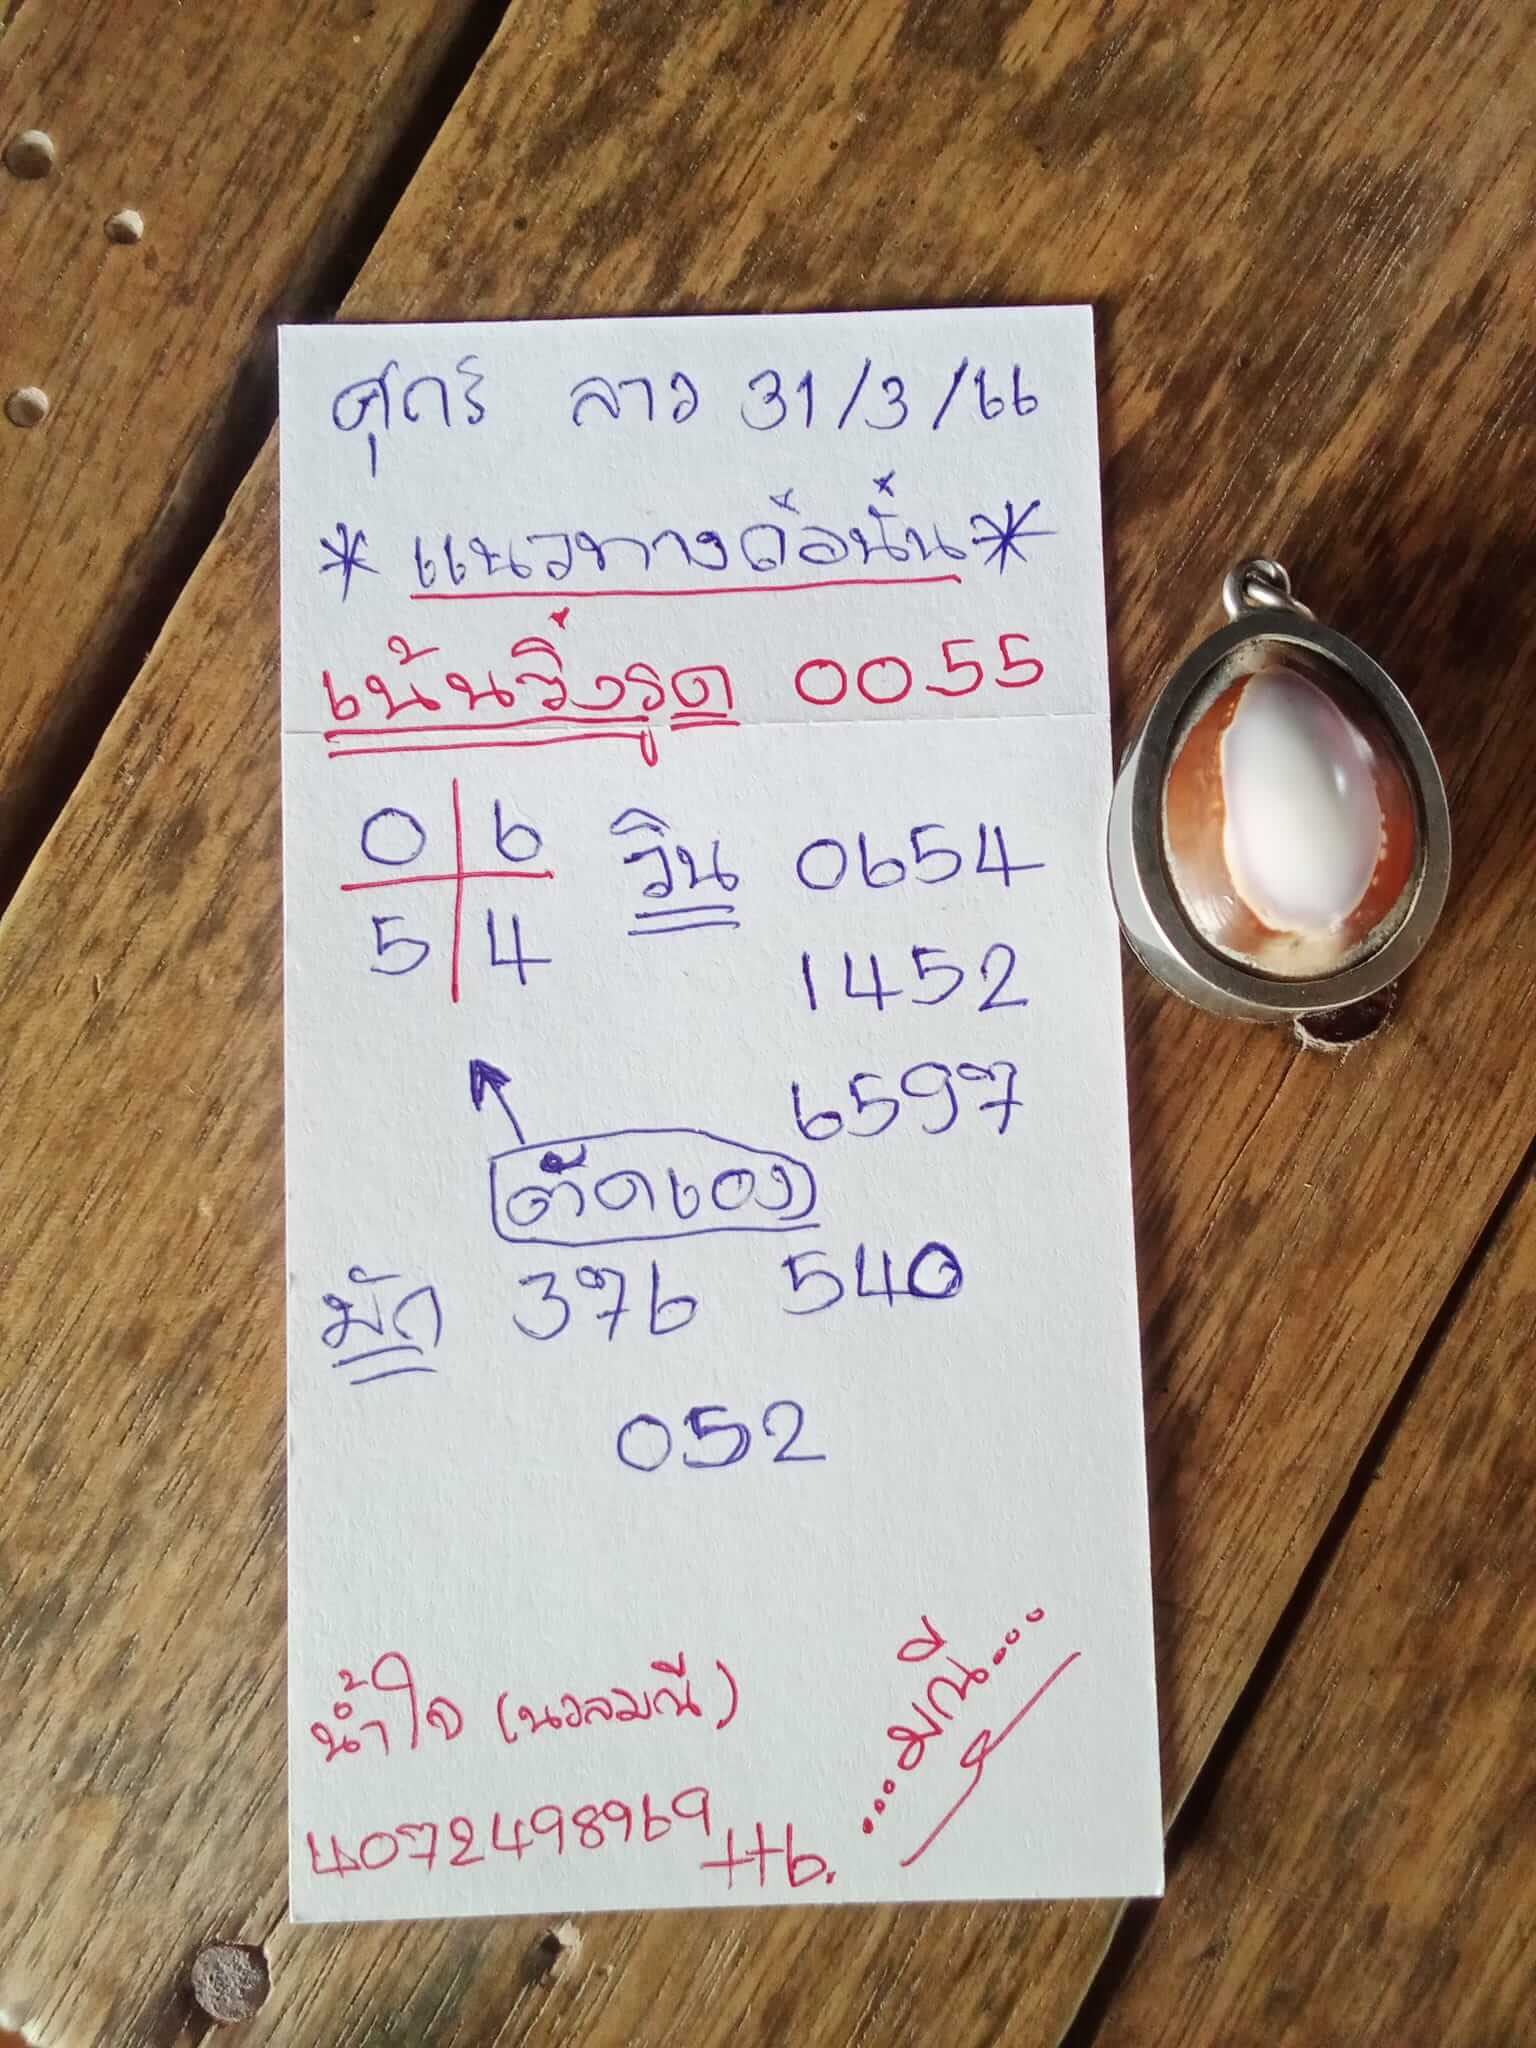 ศุกร์ ลาว 31/3/66
* แนวทางด้อนั้น *
เน้นวิ่งรูด 0055
0 6
5 4
วิน 0654
1452
6597
ตัดเอง
มัก 376 540
052
น้ำใจ (นวลมณี)
...มณี...
4072498969
ttb.